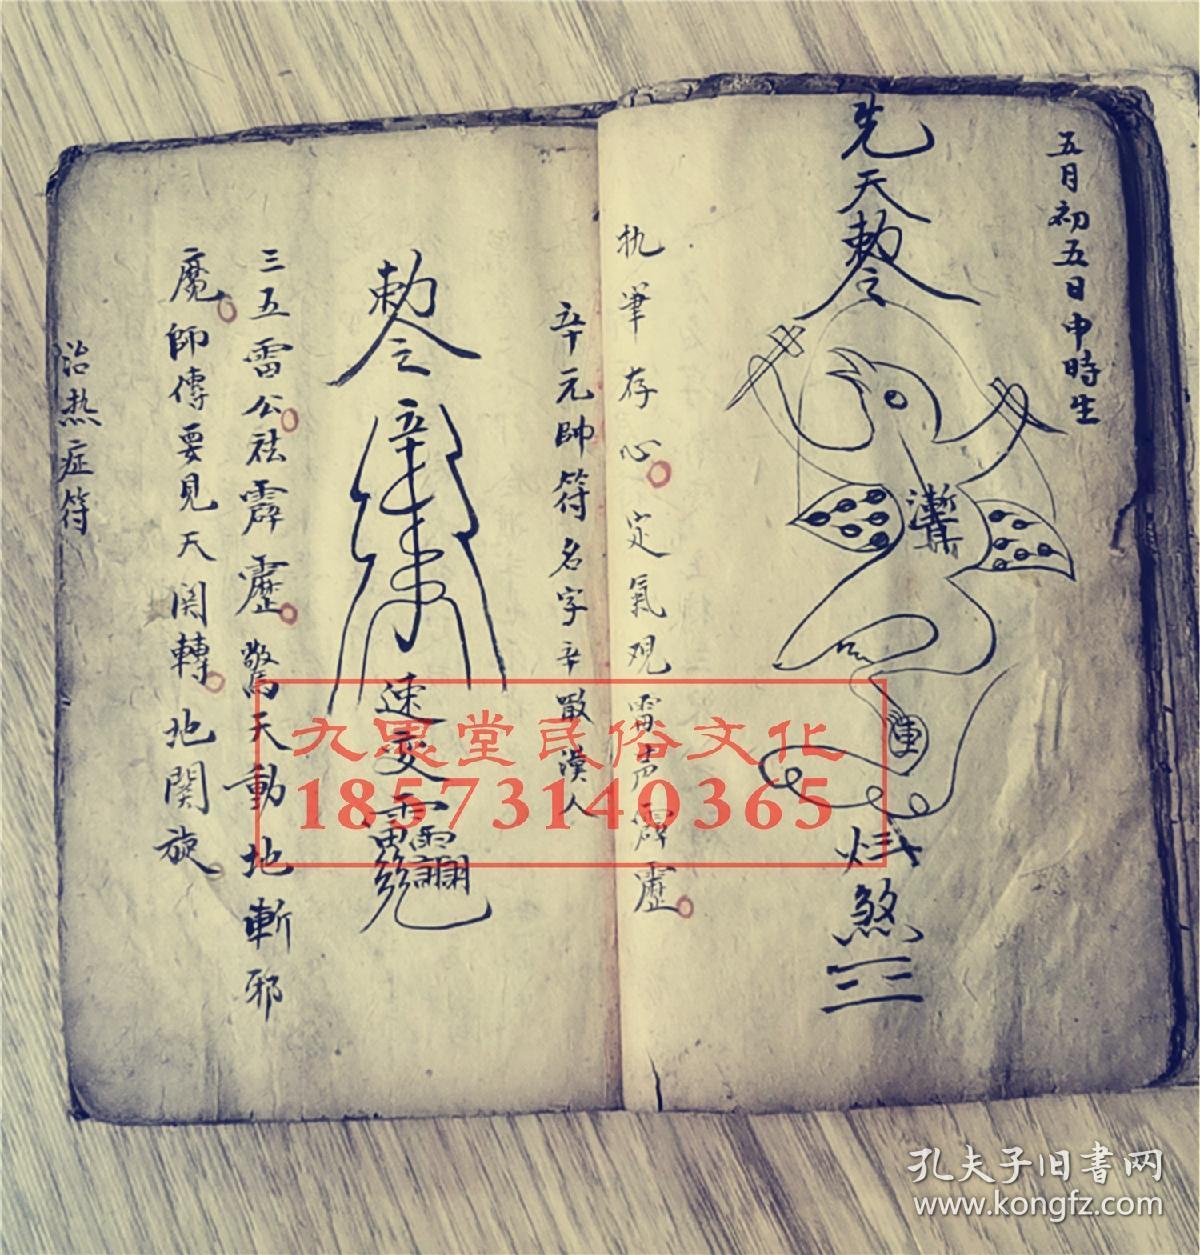 五月初五日申時生
先天勅令
煞
执筆存心定氣观雷声霹靂
辛元帥符名字辛漢人
勅令
速変
三五雷公祛霹靂驚天動地斬邪
魔師傳要見天関轉地関旋
治热症符
九思堂民俗文化
18573140365
孔夫子旧書网
www.kongfz.com